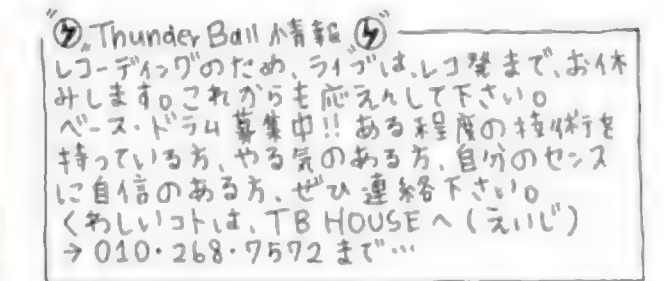 "㋘" Thunder Ball 情報 "㋘"
レコーディングのため、ライブは、レコ発まで、お休
みします。これからも応えんして下さい。
ベース・ドラム募集中!! ある程度の技術を
持っている方、やる気のある方、自分のセンス
に自信のある方、ぜひ連絡下さい。
くわしいコトは、TB HOUSEへ(えいじ)
→010・268・7572まで…